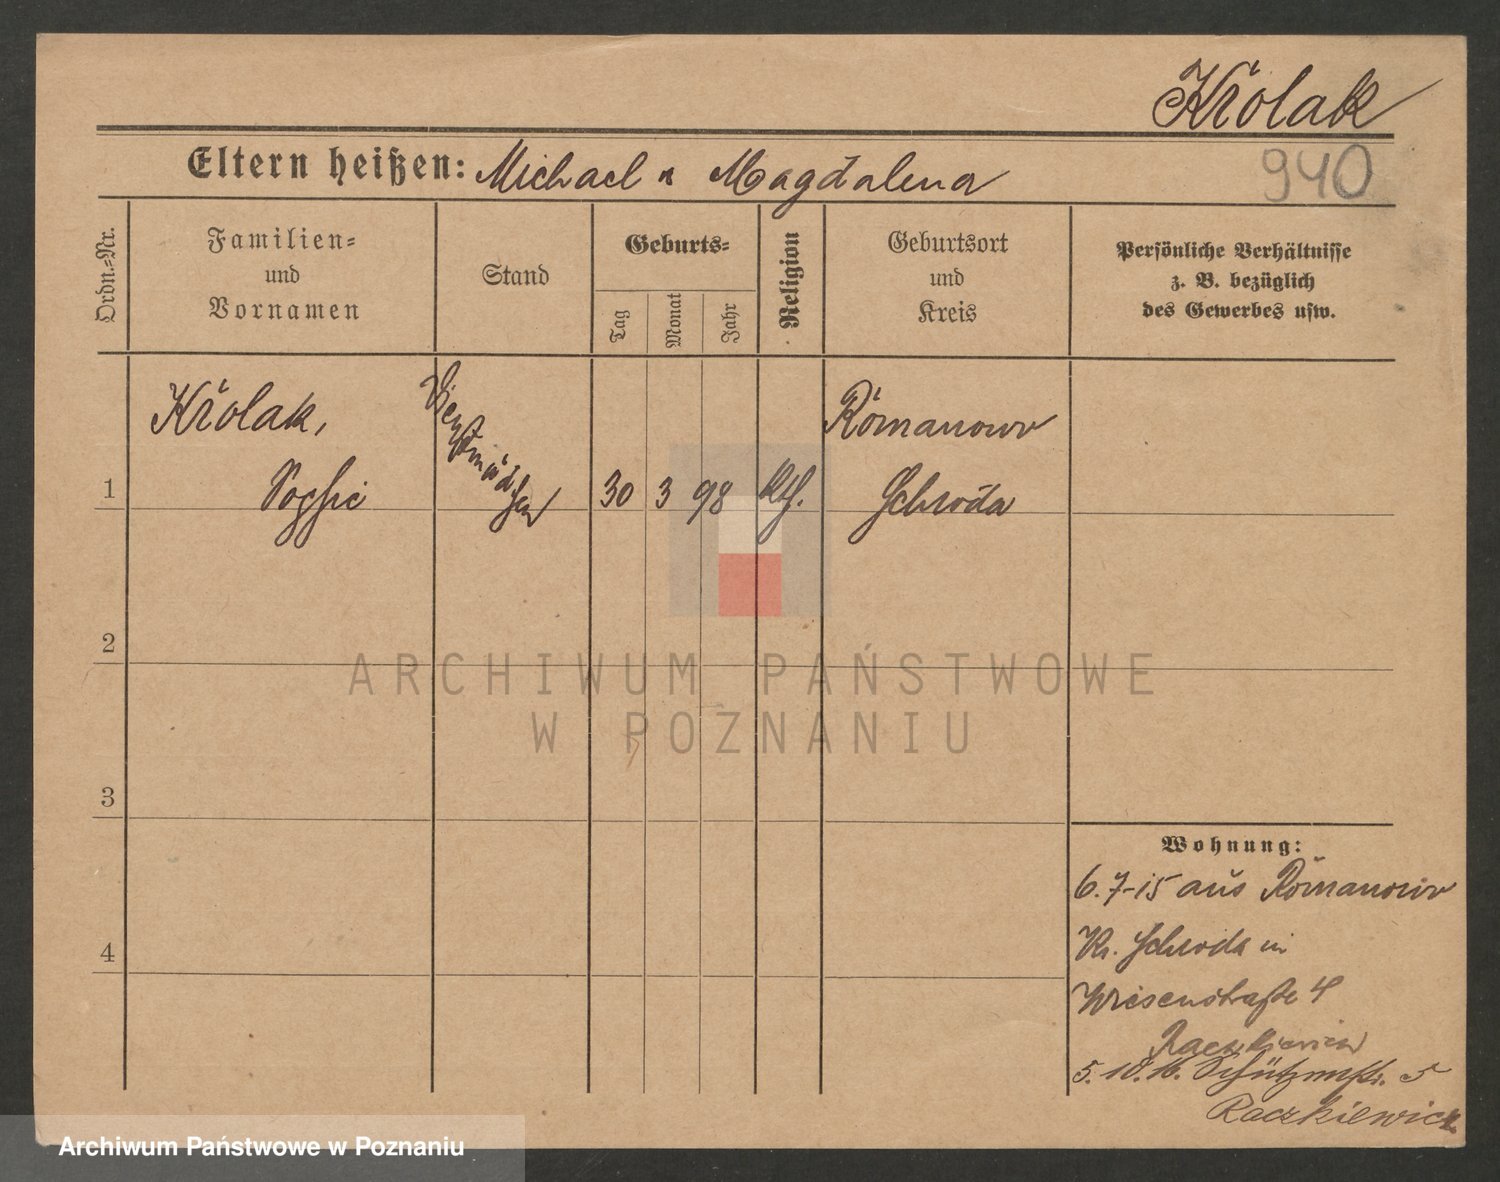 Krolak
Eltern heißen: Michael u Magdalena
940
Ordn.-Nr.
Familien-
und
Vornamen
Stand
Geburts-
Tag
Monat
Jahr
Religion
Geburtsort
und
Kreis
Persönliche Verhältnisse
z. B. bezüglich
des Gewerbes usw.
1
Krolak,
Sophie
Dienstmädchen
30 3 98 kth.
Romanowo
Schroda
2
3
4
Wohnung:
6.7-15 aus Romanowo
Kr. Schroda in
Wiesenstraße 4
Raczkiewicz
5. 10. 16. Schützenstr. 5
Raczkiewicz
ARCHIWUM PAŃSTWOWE
W POZNANIU
Archiwum Państwowe w Poznaniu